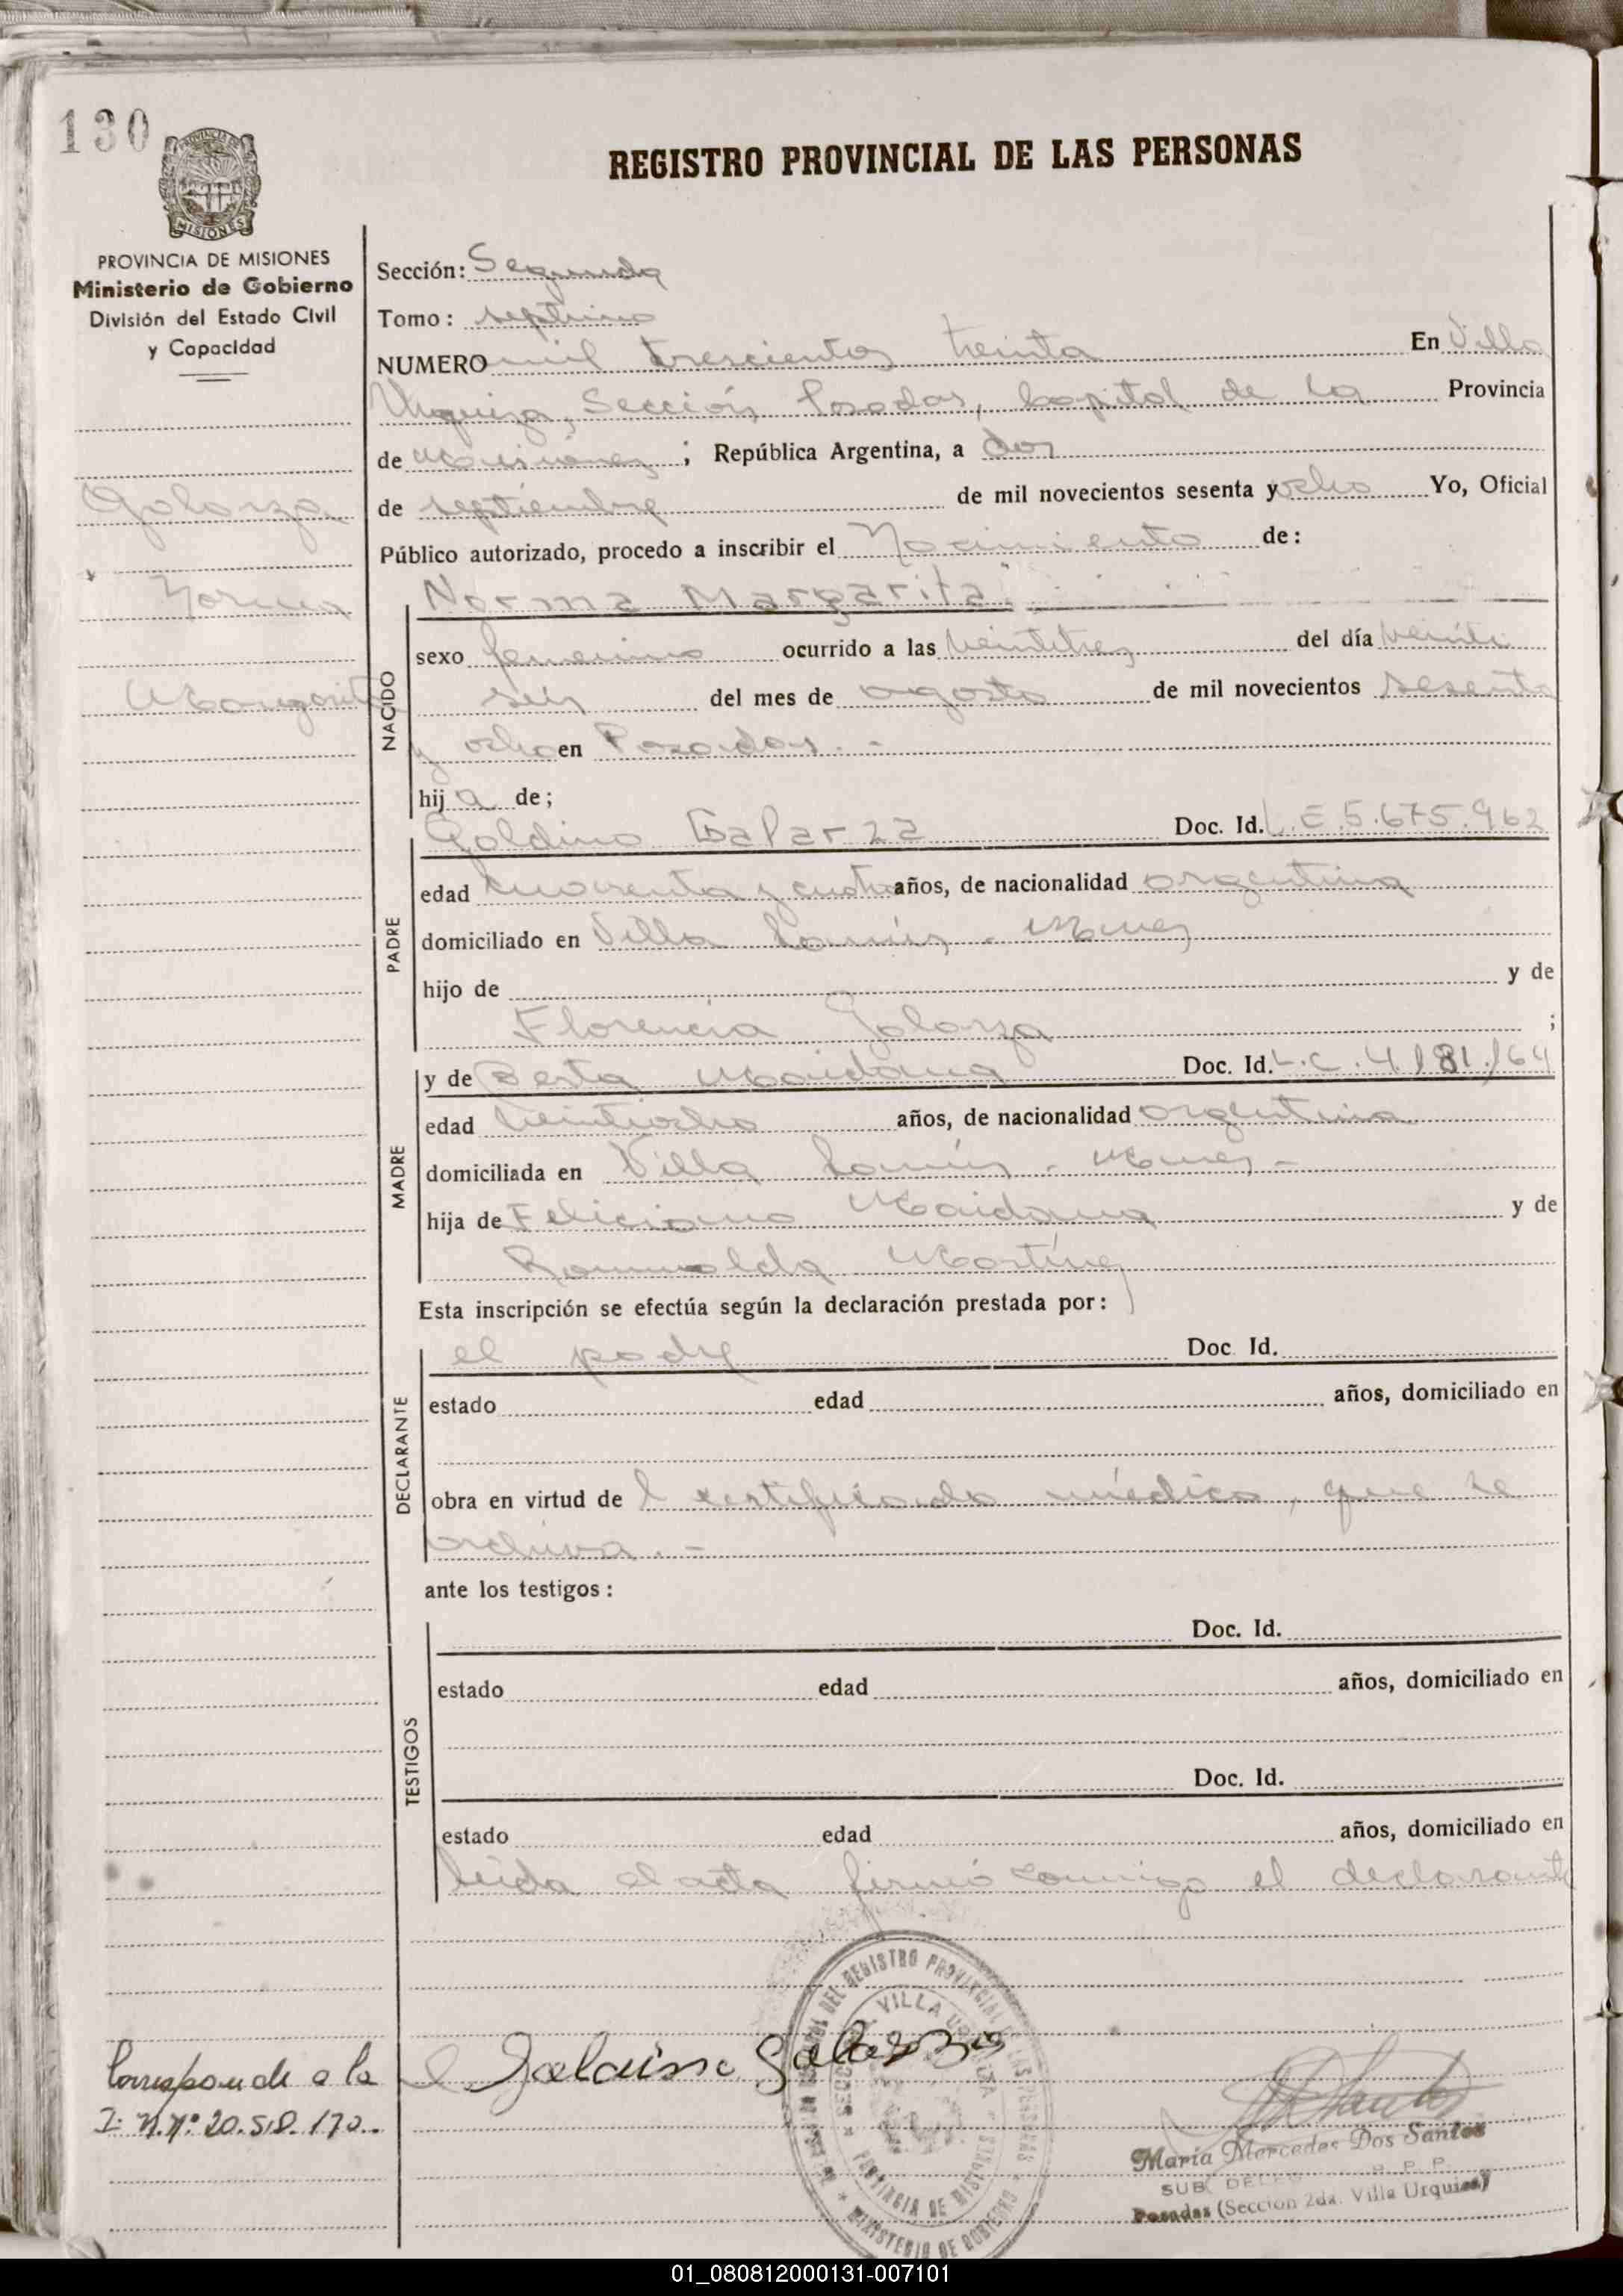 130
PROVINCIA DE
MISIONES
REGISTRO PROVINCIAL DE LAS PERSONAS
PROVINCIA DE MISIONES
Ministerio de Gobierno
División del Estado Civil
y Capacidad
Sección: Segunda
Tomo: septimo
NUMERO mil trescientos treinta En Villa
Urquiza, Sección Posadas, Capital de la Provincia
de Misiones ; República Argentina, a dos
de septiembre de mil novecientos sesenta y ocho Yo, Oficial
Público autorizado, procedo a inscribir el Nacimiento de:
Galarza
Norma
Margarita
NACIDO
Norma Margarita
sexo femenino ocurrido a las veintitres del día veinti
seis del mes de agosto de mil novecientos sesenta
y ocho en Posadas.-
hij a de;
PADRE
Galdino Galarza Doc. Id. L.E 5.675.962
edad cuarenta y cuatro años, de nacionalidad argentina
domiciliado en Villa Lanús - Mnes
hijo de y de
Florencia Galarza ;
MADRE
y de Berta Maidana Doc. Id. L.C. 4.181.164
edad veintiocho años, de nacionalidad argentina
domiciliada en Villa Lanús - Mnes-
hija de Feliciano Maidana y de
Romualda Martínez
Esta inscripción se efectúa según la declaración prestada por:
DECLARANTE
el padre Doc. Id.
estado edad años, domiciliado en
obra en virtud de l certificado médico, que se
archiva.-
ante los testigos:
TESTIGOS
Doc. Id.
estado edad años, domiciliado en
Doc. Id.
estado edad años, domiciliado en
leída el acta firmó conmigo el declarante
DEL REGISTRO PROVINCIAL DE LAS PERSONAS
VILLA URQUIZA
PROVINCIA DE MISIONES
MINISTERIO DE GOBIERNO
Galdino Galarza
Corresponde a la
I. N.Nº 20.518.170..
María Mercedes Dos Santos
SUB DELEG R. P. P.
Posadas (Sección 2da. Villa Urquiza)
01_080812000131-007101